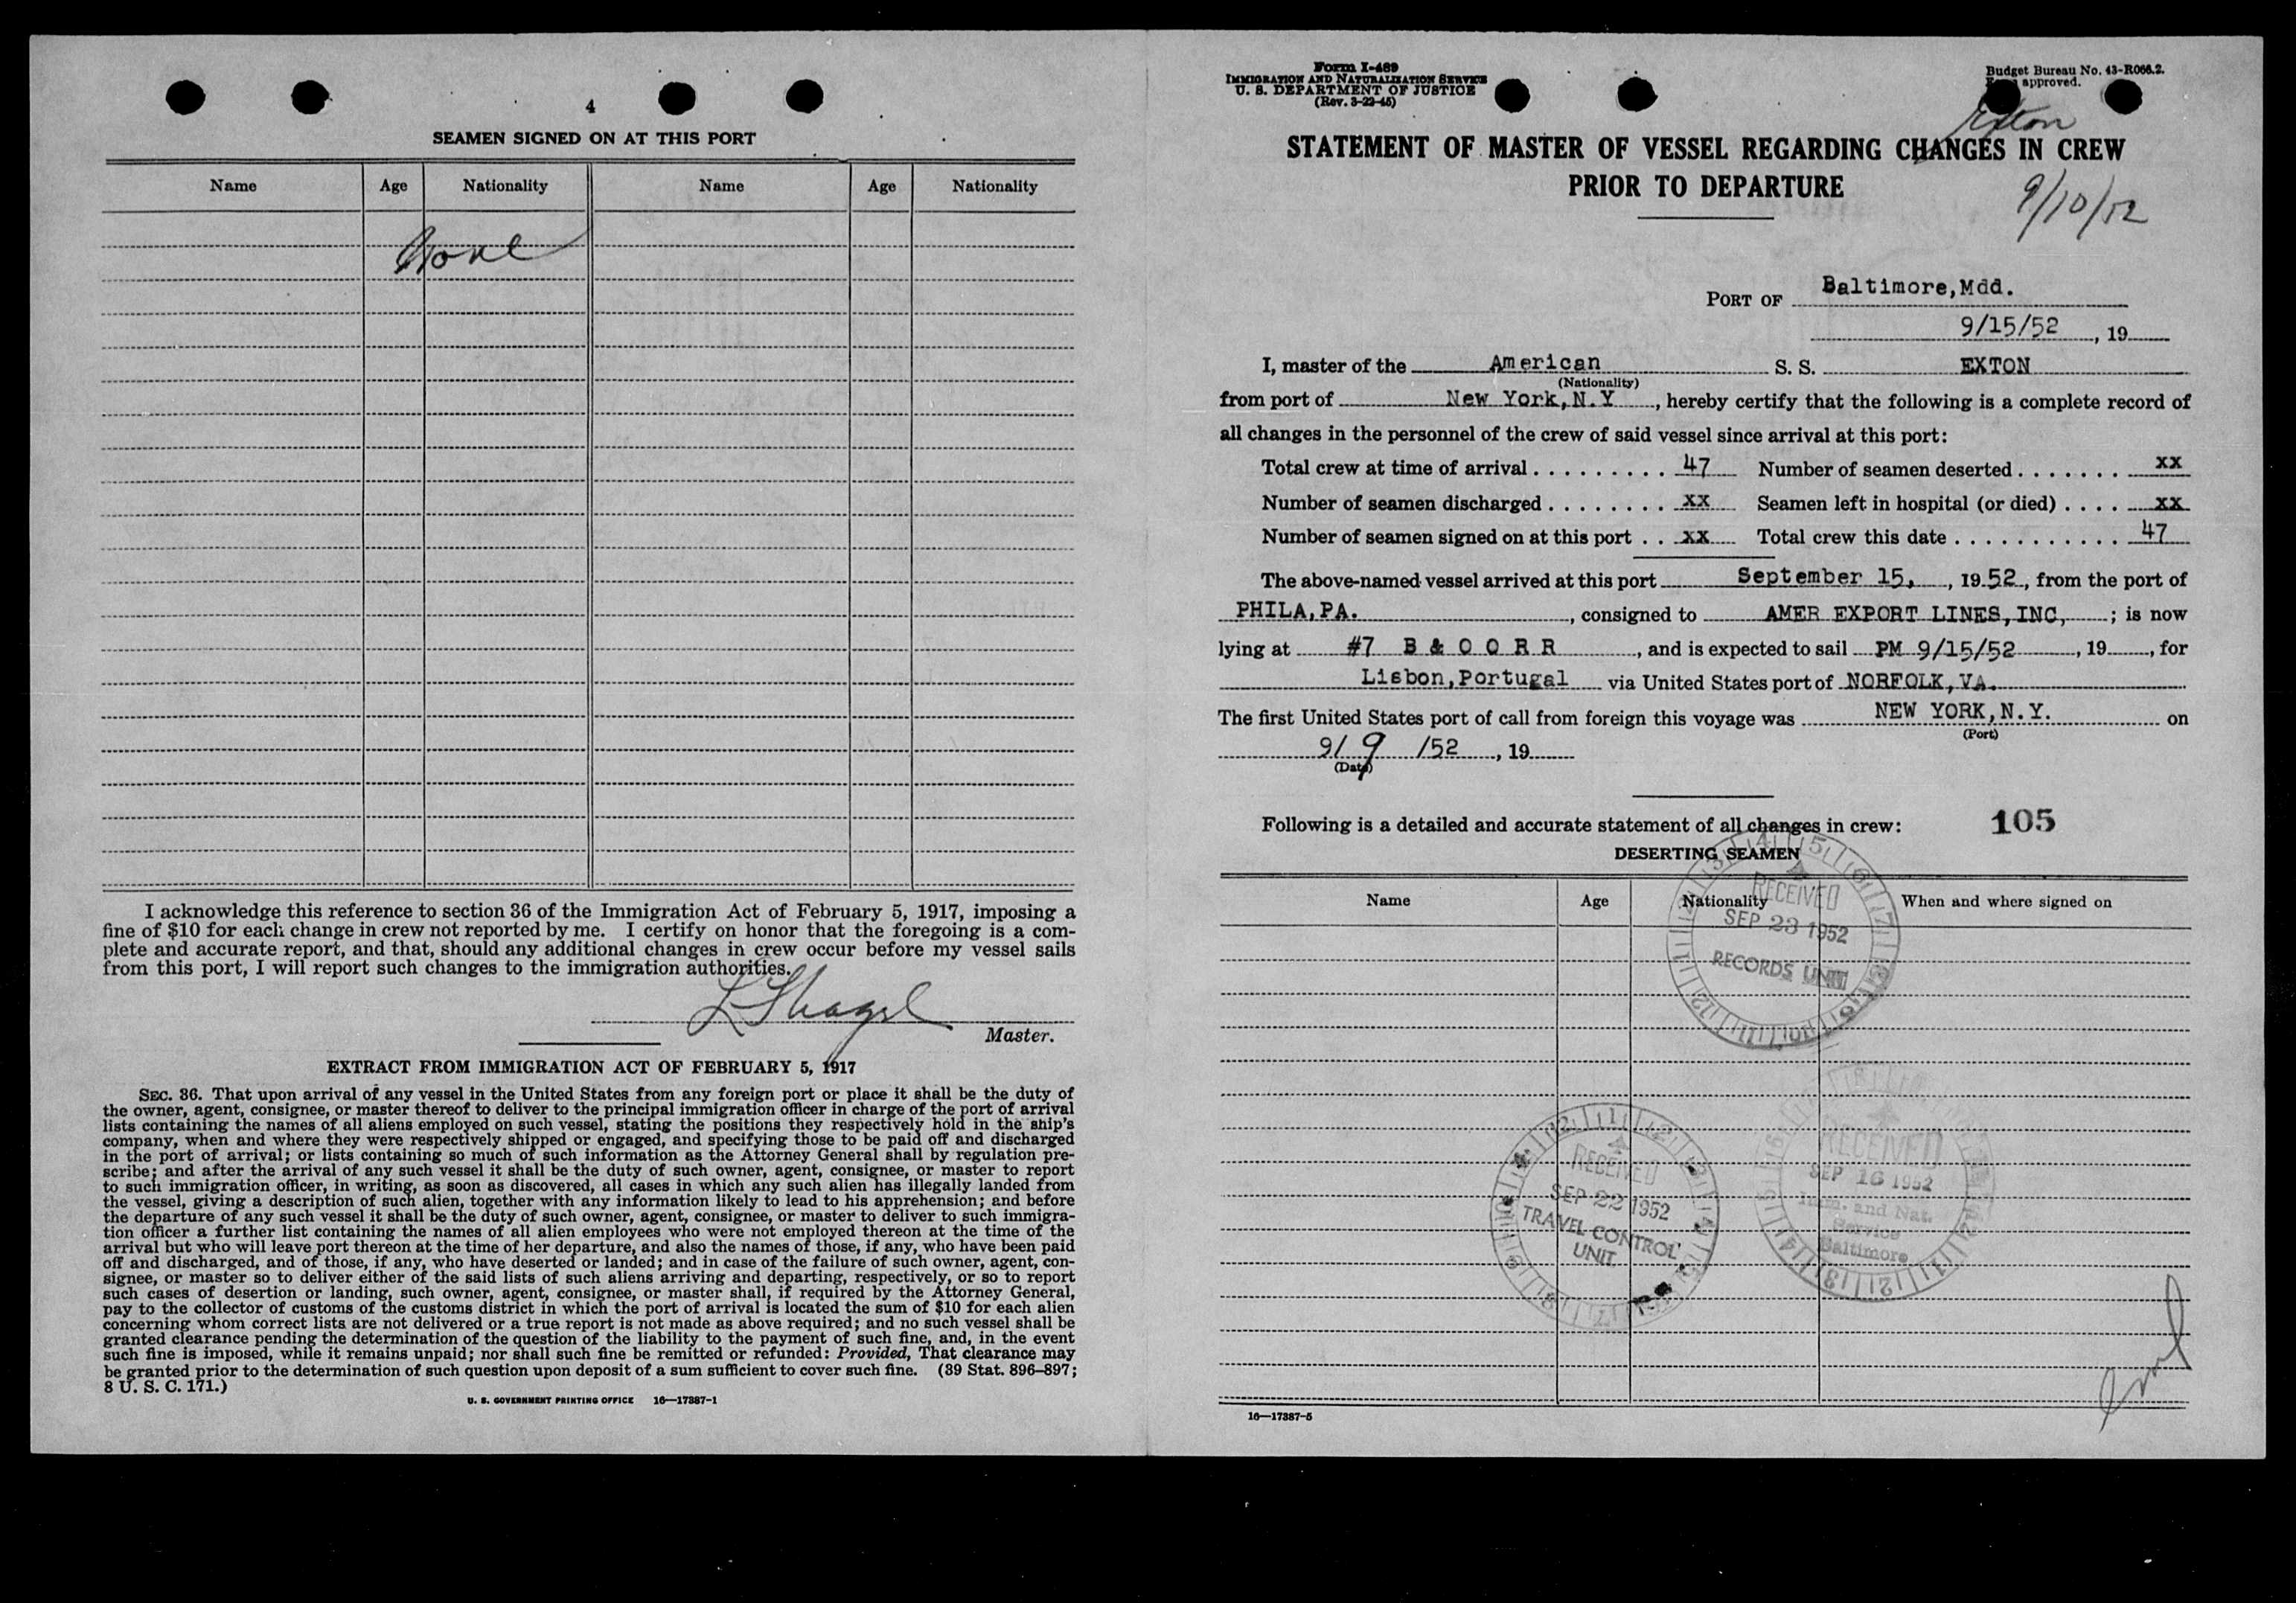 4
SEAMEN SIGNED ON AT THIS PORT
Name Age Nationality Name Age Nationality
None
I acknowledge this reference to section 36 of the Immigration Act of February 5, 1917, imposing a
fine of $10 for each change in crew not reported by me. I certify on honor that the foregoing is a com-
plete and accurate report, and that, should any additional changes in crew occur before my vessel sails
from this port, I will report such changes to the immigration authorities.
Master.
EXTRACT FROM IMMIGRATION ACT OF FEBRUARY 5, 1917
SEC. 36. That upon arrival of any vessel in the United States from any foreign port or place it shall be the duty of
the owner, agent, consignee, or master thereof to deliver to the principal immigration officer in charge of the port of arrival
lists containing the names of all aliens employed on such vessel, stating the positions they respectively hold in the ship's
company, when and where they were respectively shipped or engaged, and specifying those to be paid off and discharged
in the port of arrival; or lists containing so much of such information as the Attorney General shall by regulation pre-
scribe; and after the arrival of any such vessel it shall be the duty of such owner, agent, consignee, or master to report
to such immigration officer, in writing, as soon as discovered, all cases in which any such alien has illegally landed from
the vessel, giving a description of such alien, together with any information likely to lead to his apprehension; and before
the departure of any such vessel it shall be the duty of such owner, agent, consignee, or master to deliver to such immigra-
tion officer a further list containing the names of all alien employees who were not employed thereon at the time of the
arrival but who will leave port thereon at the time of her departure, and also the names of those, if any, who have been paid
off and discharged, and of those, if any, who have deserted or landed; and in case of the failure of such owner, agent, con-
signee, or master so to deliver either of the said lists of such aliens arriving and departing, respectively, or so to report
such cases of desertion or landing, such owner, agent, consignee, or master shall, if required by the Attorney General,
pay to the collector of customs of the customs district in which the port of arrival is located the sum of $10 for each alien
concerning whom correct lists are not delivered or a true report is not made as above required; and no such vessel shall be
granted clearance pending the determination of the question of the liability to the payment of such fine, and, in the event
such fine is imposed, while it remains unpaid; nor shall such fine be remitted or refunded: Provided, That clearance may
be granted prior to the determination of such question upon deposit of a sum sufficient to cover such fine. (39 Stat. 896–897;
8 U. S. C. 171.)
U. S. GOVERNMENT PRINTING OFFICE 16—17387-1
Form I-489
IMMIGRATION AND NATURALIZATION SERVICE
U. S. DEPARTMENT OF JUSTICE
(Rev. 3-22-45)
Budget Bureau No. 43-R066.2.
approved.
Exton
STATEMENT OF MASTER OF VESSEL REGARDING CHANGES IN CREW
PRIOR TO DEPARTURE
9/10/52
PORT OF Baltimore,Mdd.
9/15/52 , 19
I, master of the American S. S. EXTON
(Nationality)
from port of New York,N.Y , hereby certify that the following is a complete record of
all changes in the personnel of the crew of said vessel since arrival at this port:
Total crew at time of arrival 47 Number of seamen deserted xx
Number of seamen discharged xx Seamen left in hospital (or died) xx
Number of seamen signed on at this port xx Total crew this date 47
The above-named vessel arrived at this port September 15, , 1952, from the port of
PHILA,PA. , consigned to AMER EXPORT LINES,INC, ; is now
lying at #7 B & O O R R , and is expected to sail PM 9/15/52 , 19 , for
Lisbon,Portugal via United States port of NORFOLK,VA.
The first United States port of call from foreign this voyage was NEW YORK,N.Y. on
(Port)
9/ 9 /52 , 19
(Date)
Following is a detailed and accurate statement of all changes in crew: 105
DESERTING SEAMEN
Name Age Nationality When and where signed on
RECEIVED
SEP 23 1952
RECORDS UNIT
RECEIVED
SEP 22 1952
TRAVEL CONTROL
UNIT
RECEIVED
SEP 16 1952
Imm. and Nat.
Service
Baltimore
16—17387-5